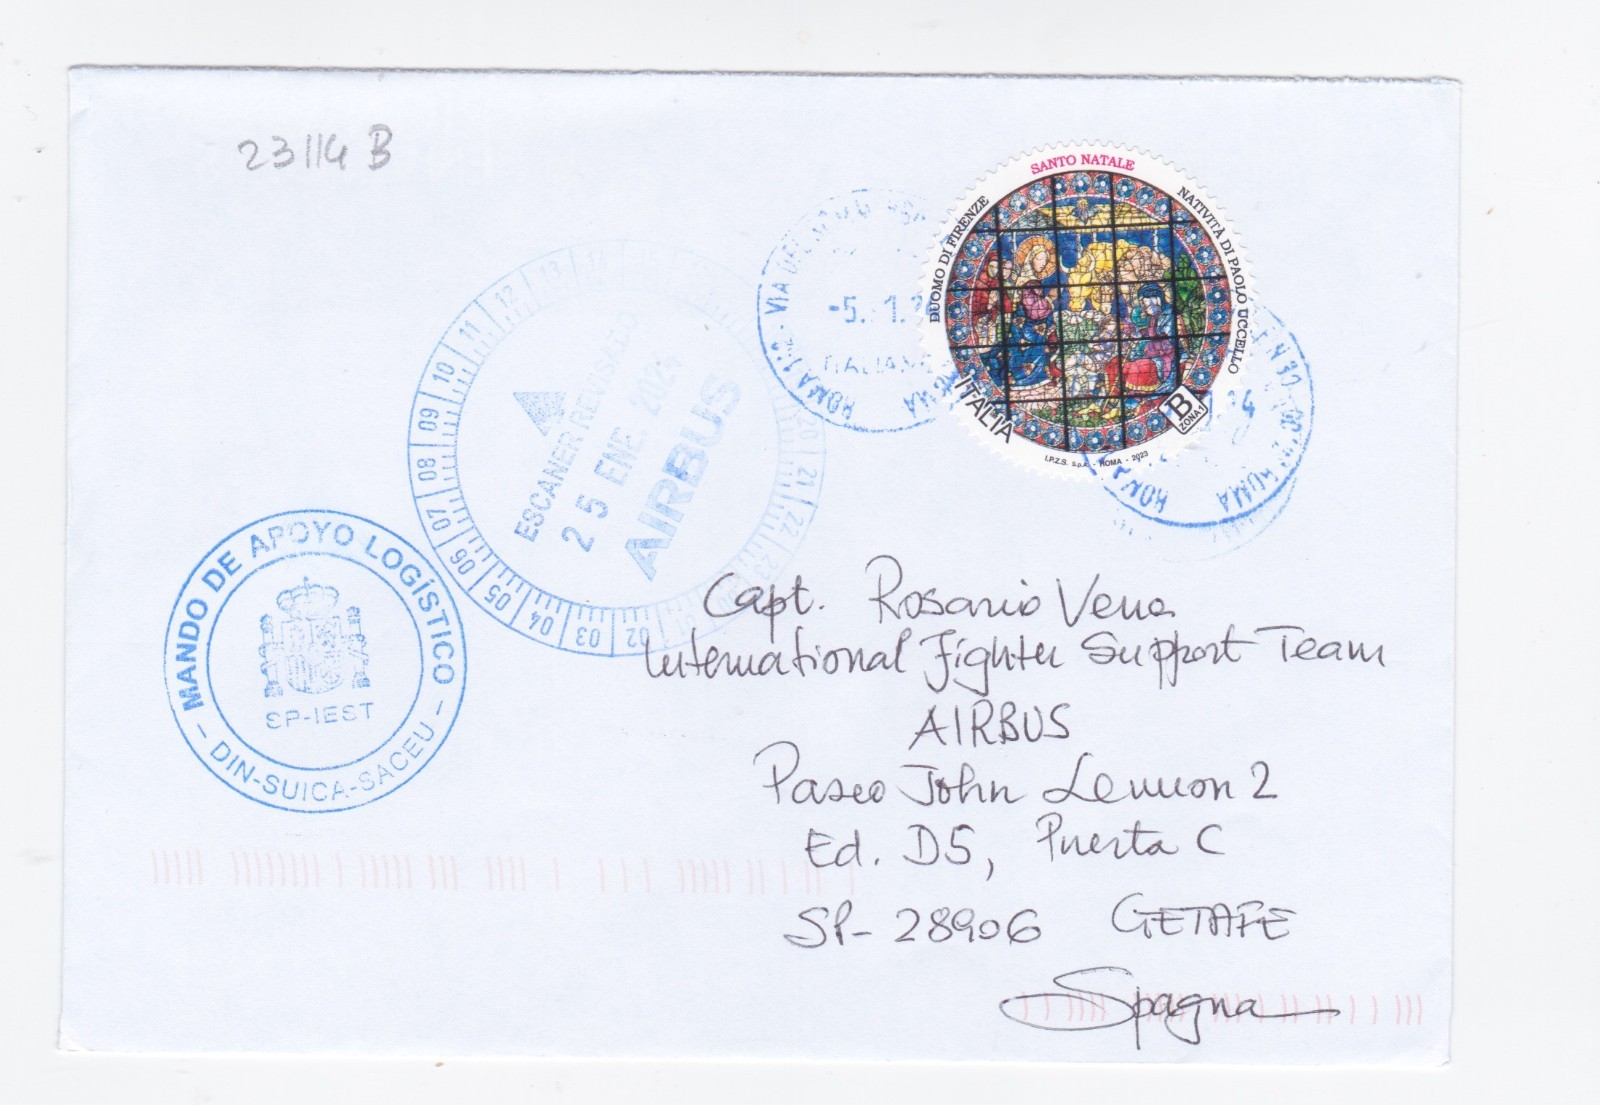 23114 B
SANTO NATALE
DUOMO DI FIRENZE
NATIVITÀ DI PAOLO UCCELLO
ITALIA
B
ZONA 1
I.P.Z.S. S.p.A. - ROMA - 2023
-5. 1.
ROMA
ROMA
ROMA
13 14 15
12
11
10
09
08
07
06
05
04
03
02
01
20
21
22
23
ESCANER REVISADO
25 ENE 2024
AIRBUS
MANDO DE APOYO LOGÍSTICO
SP-IEST
- DIN-SUICA-SACEU -
Capt. Rosario Vena
International Fighter Support Team
AIRBUS
Paseo John Lennon 2
Ed. D5, Puerta C
SP- 28906 GETAFE
Spagna